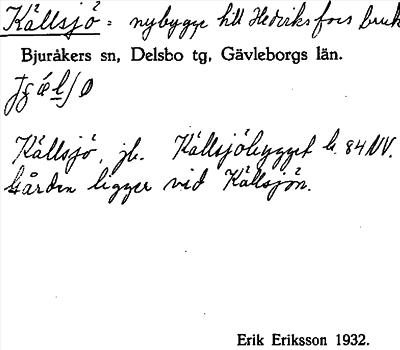 Källsjö = nybygge till Hedviksfors bruk
Bjuråkers sn, Delsbo tg, Gävleborgs län.
Källsjö, jb. Källsjöbygget k. 84 NV.
Gården ligger vid Källsjön.
Erik Eriksson 1932.